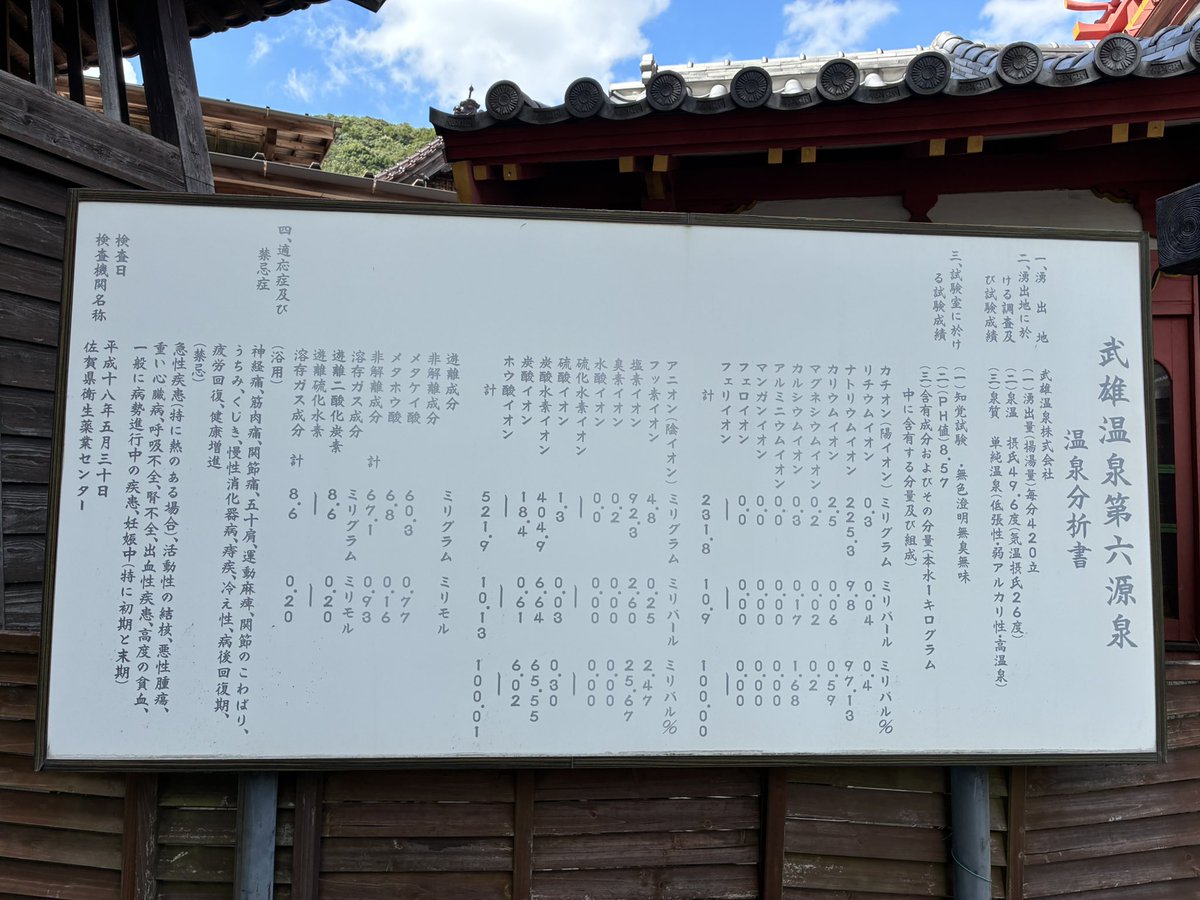 武雄温泉第六源泉
温泉分析書
一、湧出地 武雄温泉株式会社
二、湧出地に於 (一)湧出量(揚湯量)毎分420立
ける調査及 (二)泉温 摂氏49.6度(気温摂氏26度)
び試験成績 (三)泉質 単純温泉(低張性・弱アルカリ性・高温泉)
三、試験室に於け (一)知覚試験 ・無色澄明無臭無味
る試験成績 (二)PH値)8.57
(三)含有成分およびその分量(本水1キログラム
中に含有する分量及び組成)
カチオン(陽イオン) ミリグラム ミリバール ミリバル%
リチウムイオン 0.3 0.04 0.4
ナトリウムイオン 225.3 9.8 97.13
カリウムイオン 2.5 0.06 0.59
マグネシウムイオン 0.2 0.02 0.2
カルシウムイオン 0.3 0.17 1.68
アルミニウムイオン 0.0 0.00 0.00
マンガンイオン 0.0 0.00 0.00
フェロイオン 0.0 0.00 0.00
フェリイオン | | |
計 231.8 10.9 100.00
アニオン(陰イオン) ミリグラム ミリバール ミリバル%
フッ素イオン 4.8 0.25 2.47
塩素イオン 92.3 2.60 25.67
臭素イオン 0.2 0.00 0.00
水酸イオン 0.0 0.00 0.00
硫化水素イオン | | |
硫酸イオン 1.3 0.03 0.30
炭酸水素イオン 404.9 6.64 65.55
炭酸イオン 18.4 0.61 6.02
ホウ酸イオン | | |
計 521.9 10.13 100.01
遊離成分 ミリグラム ミリモル
非解離成分
メタケイ酸 60.3 0.77
メタホウ酸 6.8 0.16
非解離成分 計 67.1 0.93
溶存ガス成分 ミリグラム ミリモル
遊離二酸化炭素 8.6 0.20
遊離硫化水素 | |
溶存ガス成分 計 8.6 0.20
四、適応症及び
禁忌症
(浴用)
神経痛、筋肉痛、関節痛、五十肩、運動麻痺、関節のこわばり、
うちみ、くじき、慢性消化器病、痔疾、冷え性、病後回復期、
疲労回復、健康増進
(禁忌)
急性疾患(特に熱のある場合)、活動性の結核、悪性腫瘍、
重い心臓病、呼吸不全、腎不全、出血性疾患、高度の貧血、
一般に病勢進行中の疾患、妊娠中(特に初期と末期)
検査日 平成十八年五月三十日
検査機関名称 佐賀県衛生薬業センター